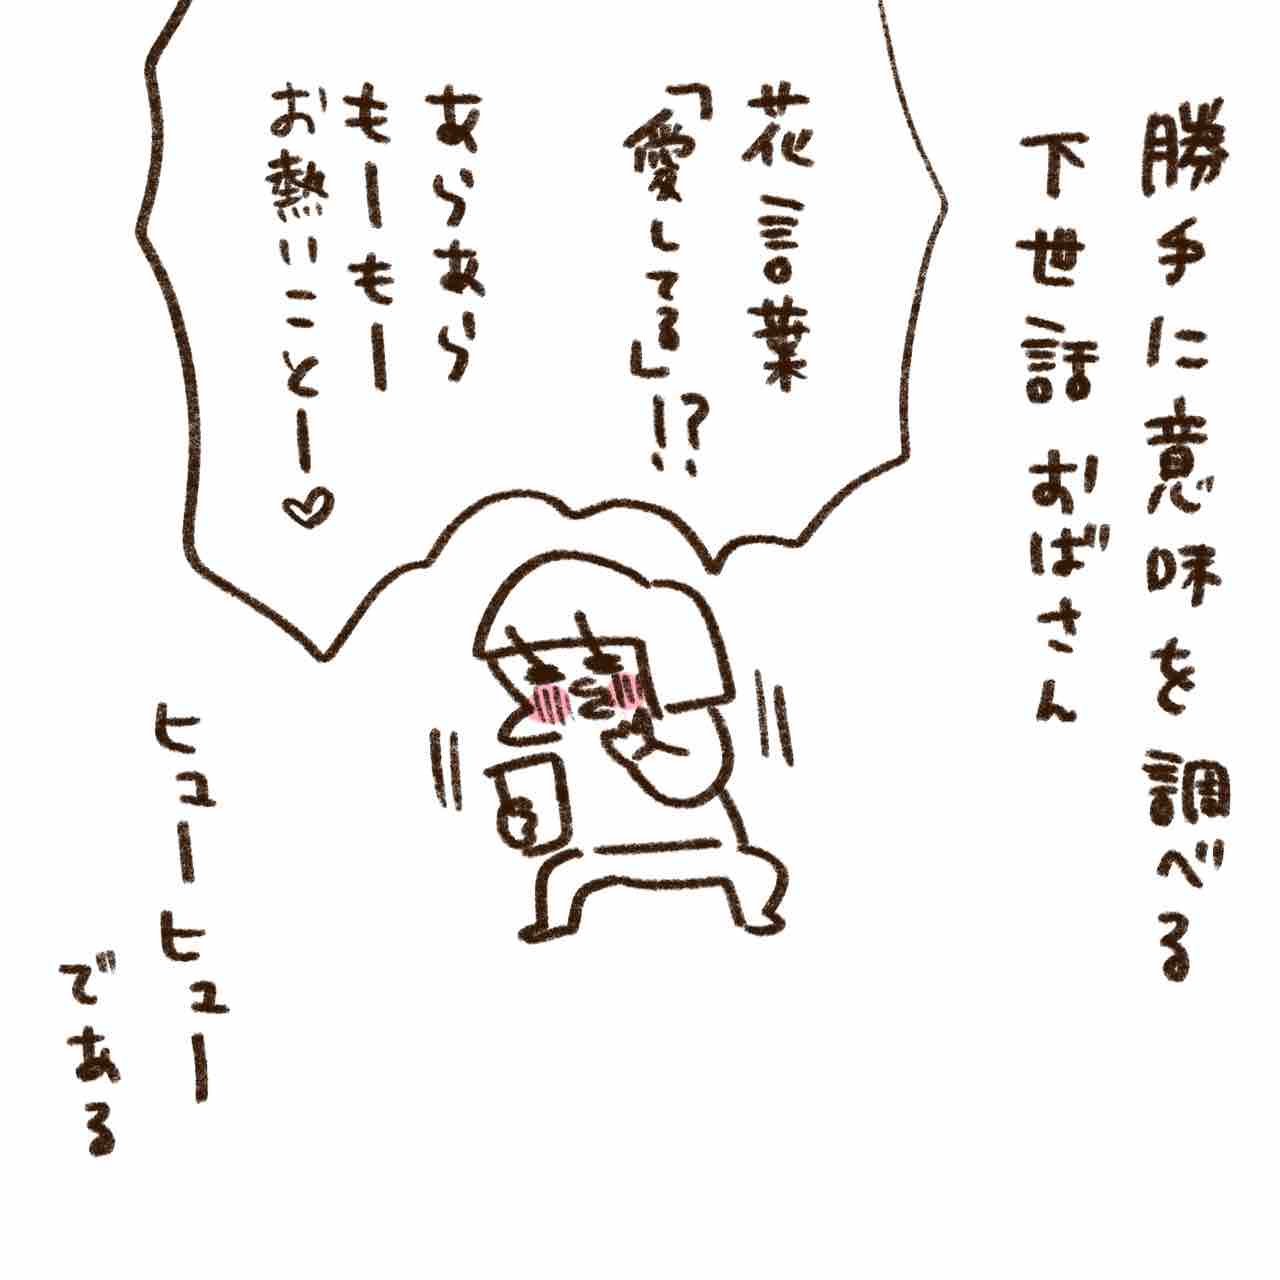 勝手に意味を調べる
下世話おばさん
花言葉
「愛してる」!?
あらあら
もーもー
お熱いことー♡
ヒューヒュー
である